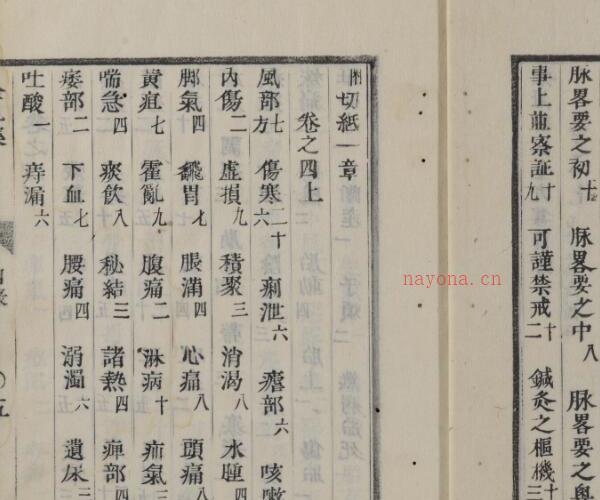 脉畧要之初十 脉畧要之中八 脉畧要之奥
事上龍察証十九 可謹禁戒十二 鍼灸之樞機十三
附切紙一章
卷之四上
風部方七 傷寒二十六 痢泄六 瘧部六 咳嗽
内傷二 虚損九 積聚三 消渴八 水腫四
脚氣四 飜胃七 脹滿四 心痛八 頭痛八
黄疸七 霍亂九 腹痛二 淋病十 疝氣三
喘急四 痰飲八 秘結三 諸熱四 痺部四
痿部二 下血七 腰痛四 溺濁六 遺尿
吐酸一 痔漏六
〇五
nayona.cn